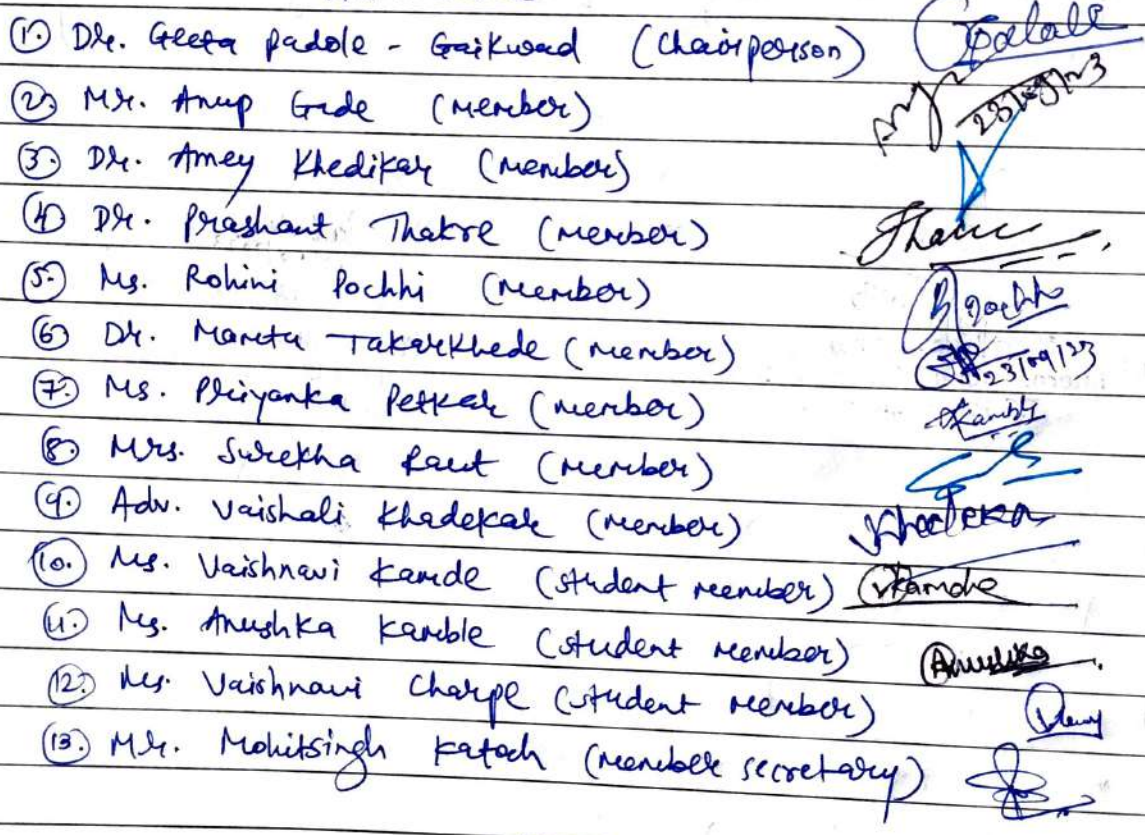 1. Dr. Geeta Padole - Gaikwad (Chairperson)
2. Mr. Anup Gade (Member) 23/09/23
3. Dr. Amey Khedikar (Member)
4. Dr. Prashant Thakre (Member)
5. Ms. Rohini Pochhi (Member)
6. Dr. Mamta Takarkhede (Member) 23/09/23
7. Ms. Priyanka Petkar (Member)
8. Mrs. Surekha Raut (Member)
9. Adv. Vaishali Khadekar (Member)
10. Ms. Vaishnavi Kamde (Student Member) VKamde
11. Ms. Anushka Kamble (Student Member) Anushka
12. Ms. Vaishnavi Charpe (Student Member)
13. Mr. Mohitsingh Katoch (Member Secretary)